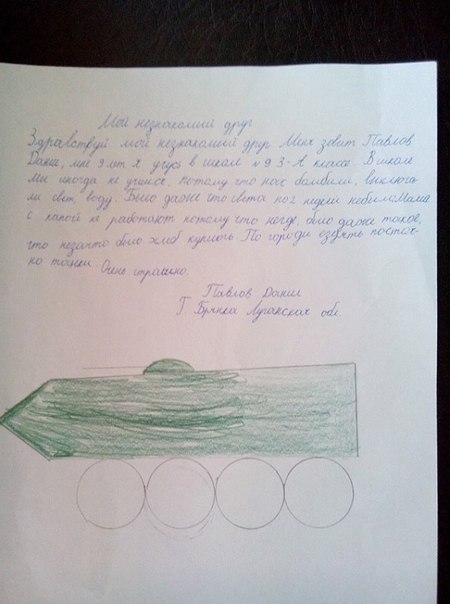 Мой незнакомый друг
Здравствуй мой незнакомый друг Меня зовит Павлов
Данил, мне 9 лет я учусь в школе №9 3-А классе. В школе
мы иногда не учимся, потому что нас бамбили, выключа
ли свет, воду. Было даже что света по 2 недели небыло Мама
с папой не работают потому что негде, было даже такое,
что незачто было хлеб купить По городи ездять постоя-
но танки Очень страшно.
Павлов Данил
Г. Брянка Луганская обл.